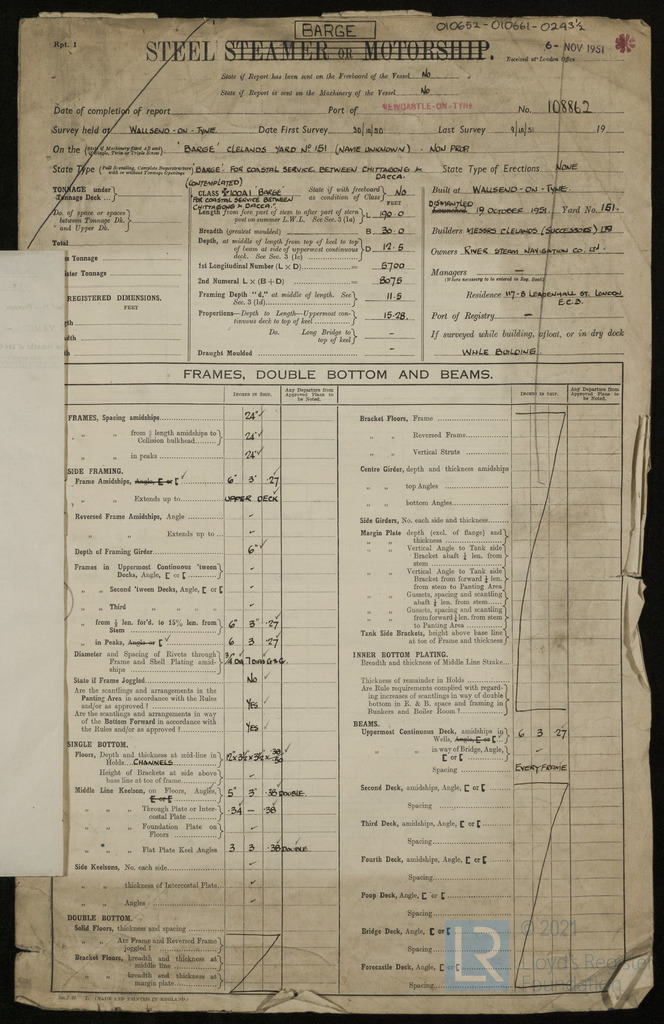 BARGE
010652-010661-0243½
Rpt. 1
STEEL STEAMER OR MOTORSHIP.
6- NOV 1951
Received at London Office
State if Report has been sent on the Freeboard of the Vessel No
State if Report is sent on the Machinery of the Vessel No
Date of completion of report Port of NEWCASTLE-ON-TYNE No. 108862
Survey held at WALLSEND-ON-TYNE Date First Survey 30/10/50 Last Survey 9/10/51 19
On the (State if Machinery fitted Aft and if Single, Twin or Triple Screw) 'BARGE' CLELANDS YARD No 151 (NAME UNKNOWN) - NON PROP
State Type (Full Scantling, Complete Superstructure with or without Tonnage Openings) 'BARGE'. FOR COASTAL SERVICE BETWEEN CHITTAGONG & DACCA. State Type of Erections NONE
TONNAGE under Tonnage Deck
Do. of space or spaces between Tonnage Dk. and Upper Dk.
Total
Tonnage
ister Tonnage
REGISTERED DIMENSIONS.
FEET
gth
dth
h
(CONTEMPLATED)
CLASS ✠100A1 'BARGE' State if with freeboard as condition of Class No
'FOR COASTAL SERVICE BETWEEN CHITTAGONG & DACCA.' FEET
Length from fore part of stem to after part of stern post on summer L.W.L. See Sec. 3 (1a) L 190.0
Breadth (greatest moulded) B 30.0
Depth, at middle of length from top of keel to top of beam at side of uppermost continuous deck. See Sec. 3 (1c) D 12.5
1st Longitudinal Number (L × D) = 5700
2nd Numeral L × (B + D) = 8075
Framing Depth "d," at middle of length. See Sec. 3 (1d) 11.5
Proportions—Depth to Length—Uppermost continuous deck to top of keel 15.28
Do. Long Bridge to top of keel -
Draught Moulded -
Built at WALLSEND-ON-TYNE.
DISMANTLED Launched 19 OCTOBER 1951. Yard No. 151.
Builders MESSRS CLELANDS (SUCCESSORS) LTD
Owners RIVER STEAM NAVIGATION CO. LTD.
Managers —
(Where necessary to be entered in Reg. Book)
Residence 117-8 LEADENHALL ST. LONDON E.C.3.
Port of Registry —
If surveyed while building, afloat, or in dry dock
WHILE BUILDING.
FRAMES, DOUBLE BOTTOM AND BEAMS.
INCHES IN SHIP. Any Departure from Approved Plans to be Noted.
FRAMES, Spacing amidships 24"✓
" " from ⅕ length amidships to Collision bulkhead 24"✓
" " in peaks 24"✓
SIDE FRAMING.
Frame Amidships, Angle, [ or [ 6" 3" .27
" " Extends up to UPPER DECK
Reversed Frame Amidships, Angle -
" " Extends up to -
Depth of Framing Girder 6"✓
Frames in Uppermost Continuous 'tween Decks, Angle, [ or [ -
" " Second 'tween Decks, Angle, [ or [ -
" " Third " " " " -
" " from ⅕ len. for'd. to 15% len. from Stem 6" 3" .27
" " in Peaks, Angle or [ ✓ 6 3 .27
Diameter and Spacing of Rivets through Frame and Shell Plating amidships ¾" DIA 7 DIAS C to C
State if Frame Joggled No
Are the scantlings and arrangements in the Panting Area in accordance with the Rules and/or as approved ? YES
Are the scantlings and arrangements in way of the Bottom Forward in accordance with the Rules and/or as approved ? YES
SINGLE BOTTOM.
Floors, Depth and thickness at mid-line in Holds CHANNELS 12×3½×3½× .38/.50
Height of Brackets at side above base line at toe of frame -
Middle Line Keelson, on Floors, Angles, [ or [ 5" 3" .38 DOUBLE.
" " Through Plate or Intercostal Plate .34 — .38
" " Foundation Plate on Floors -
" " Flat Plate Keel Angles 3 3 .38 DOUBLE
Side Keelsons, No. each side -
" " thickness of Intercostal Plate -
" " Angles -
DOUBLE BOTTOM.
Solid Floors, thickness and spacing
" " Are Frame and Reversed Frame joggled ?
Bracket Floors, breadth and thickness at middle line
" " breadth and thickness at margin plate
INCHES IN SHIP. Any Departure from Approved Plans to be Noted.
Bracket Floors, Frame
" " Reversed Frame
" " Vertical Struts
Centre Girder, depth and thickness amidships
" " top Angles
" " bottom Angles
Side Girders, No. each side and thickness
Margin Plate depth (excl. of flange) and thickness
" " Vertical Angle to Tank side Bracket abaft ¼ len. from stem
" " Vertical Angle to Tank side Bracket from forward ¼ len. from stem to Panting Area
" " Gussets, spacing and scantling abaft ¼ len. from stem
" " Gussets, spacing and scantling from forward ¼ len. from stem to Panting Area
Tank Side Brackets, height above base line at toe of Frame and thickness
INNER BOTTOM PLATING.
Breadth and thickness of Middle Line Strake
Thickness of remainder in Holds
Are Rule requirements complied with regarding increases of scantlings in way of double bottom in E. & B. space and framing in Bunkers and Boiler Room ?
BEAMS.
Uppermost Continuous Deck, amidships in Wells, Angle, [ or [ 6 3 .27
" " in way of Bridge, Angle, [ or [ -
Spacing EVERY FRAME
Second Deck, amidships, Angle, [ or [
Spacing
Third Deck, amidships, Angle, [ or [
Spacing
Fourth Deck, amidships, Angle, [ or [
Spacing
Poop Deck, Angle, [ or [
Spacing
Bridge Deck, Angle, [ or [
Spacing
Forecastle Deck, Angle, [ or [
Spacing
(MADE AND PRINTED IN ENGLAND.)
LR
© 2021
Lloyd's Register
Foundation